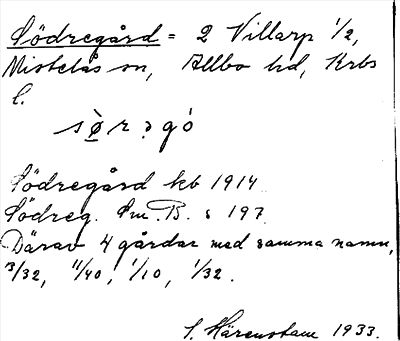 Södregård = 2 Villarp 1/2,
Mistelås sn, Allbo hd, Krbs
l.
sø̀rəgó
Södregård kb 1914
Södreg. Sm. B. s 197
Därav 4 gårdar med samma namn,
13/32, 11/40, 1/10, 1/32.
S. Härenstam 1933.